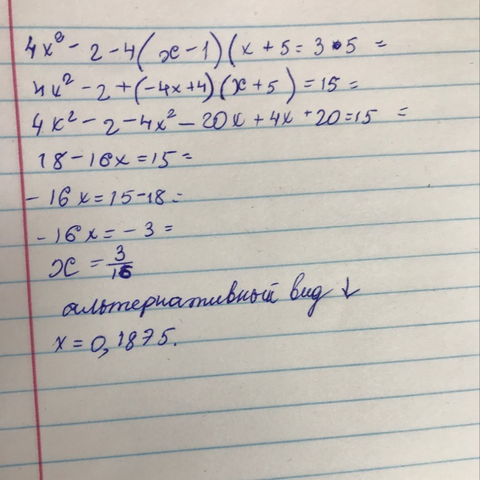 4x² - 2 - 4(x - 1)(x + 5 = 3 • 5 =
4x² - 2 + (-4x + 4)(x + 5) = 15 =
4x² - 2 - 4x² - 20x + 4x + 20 = 15 =
18 - 16x = 15 =
- 16x = 15 - 18 =
- 16x = - 3 =
x = 3/16
альтернативный вид ↓
x = 0,1875.